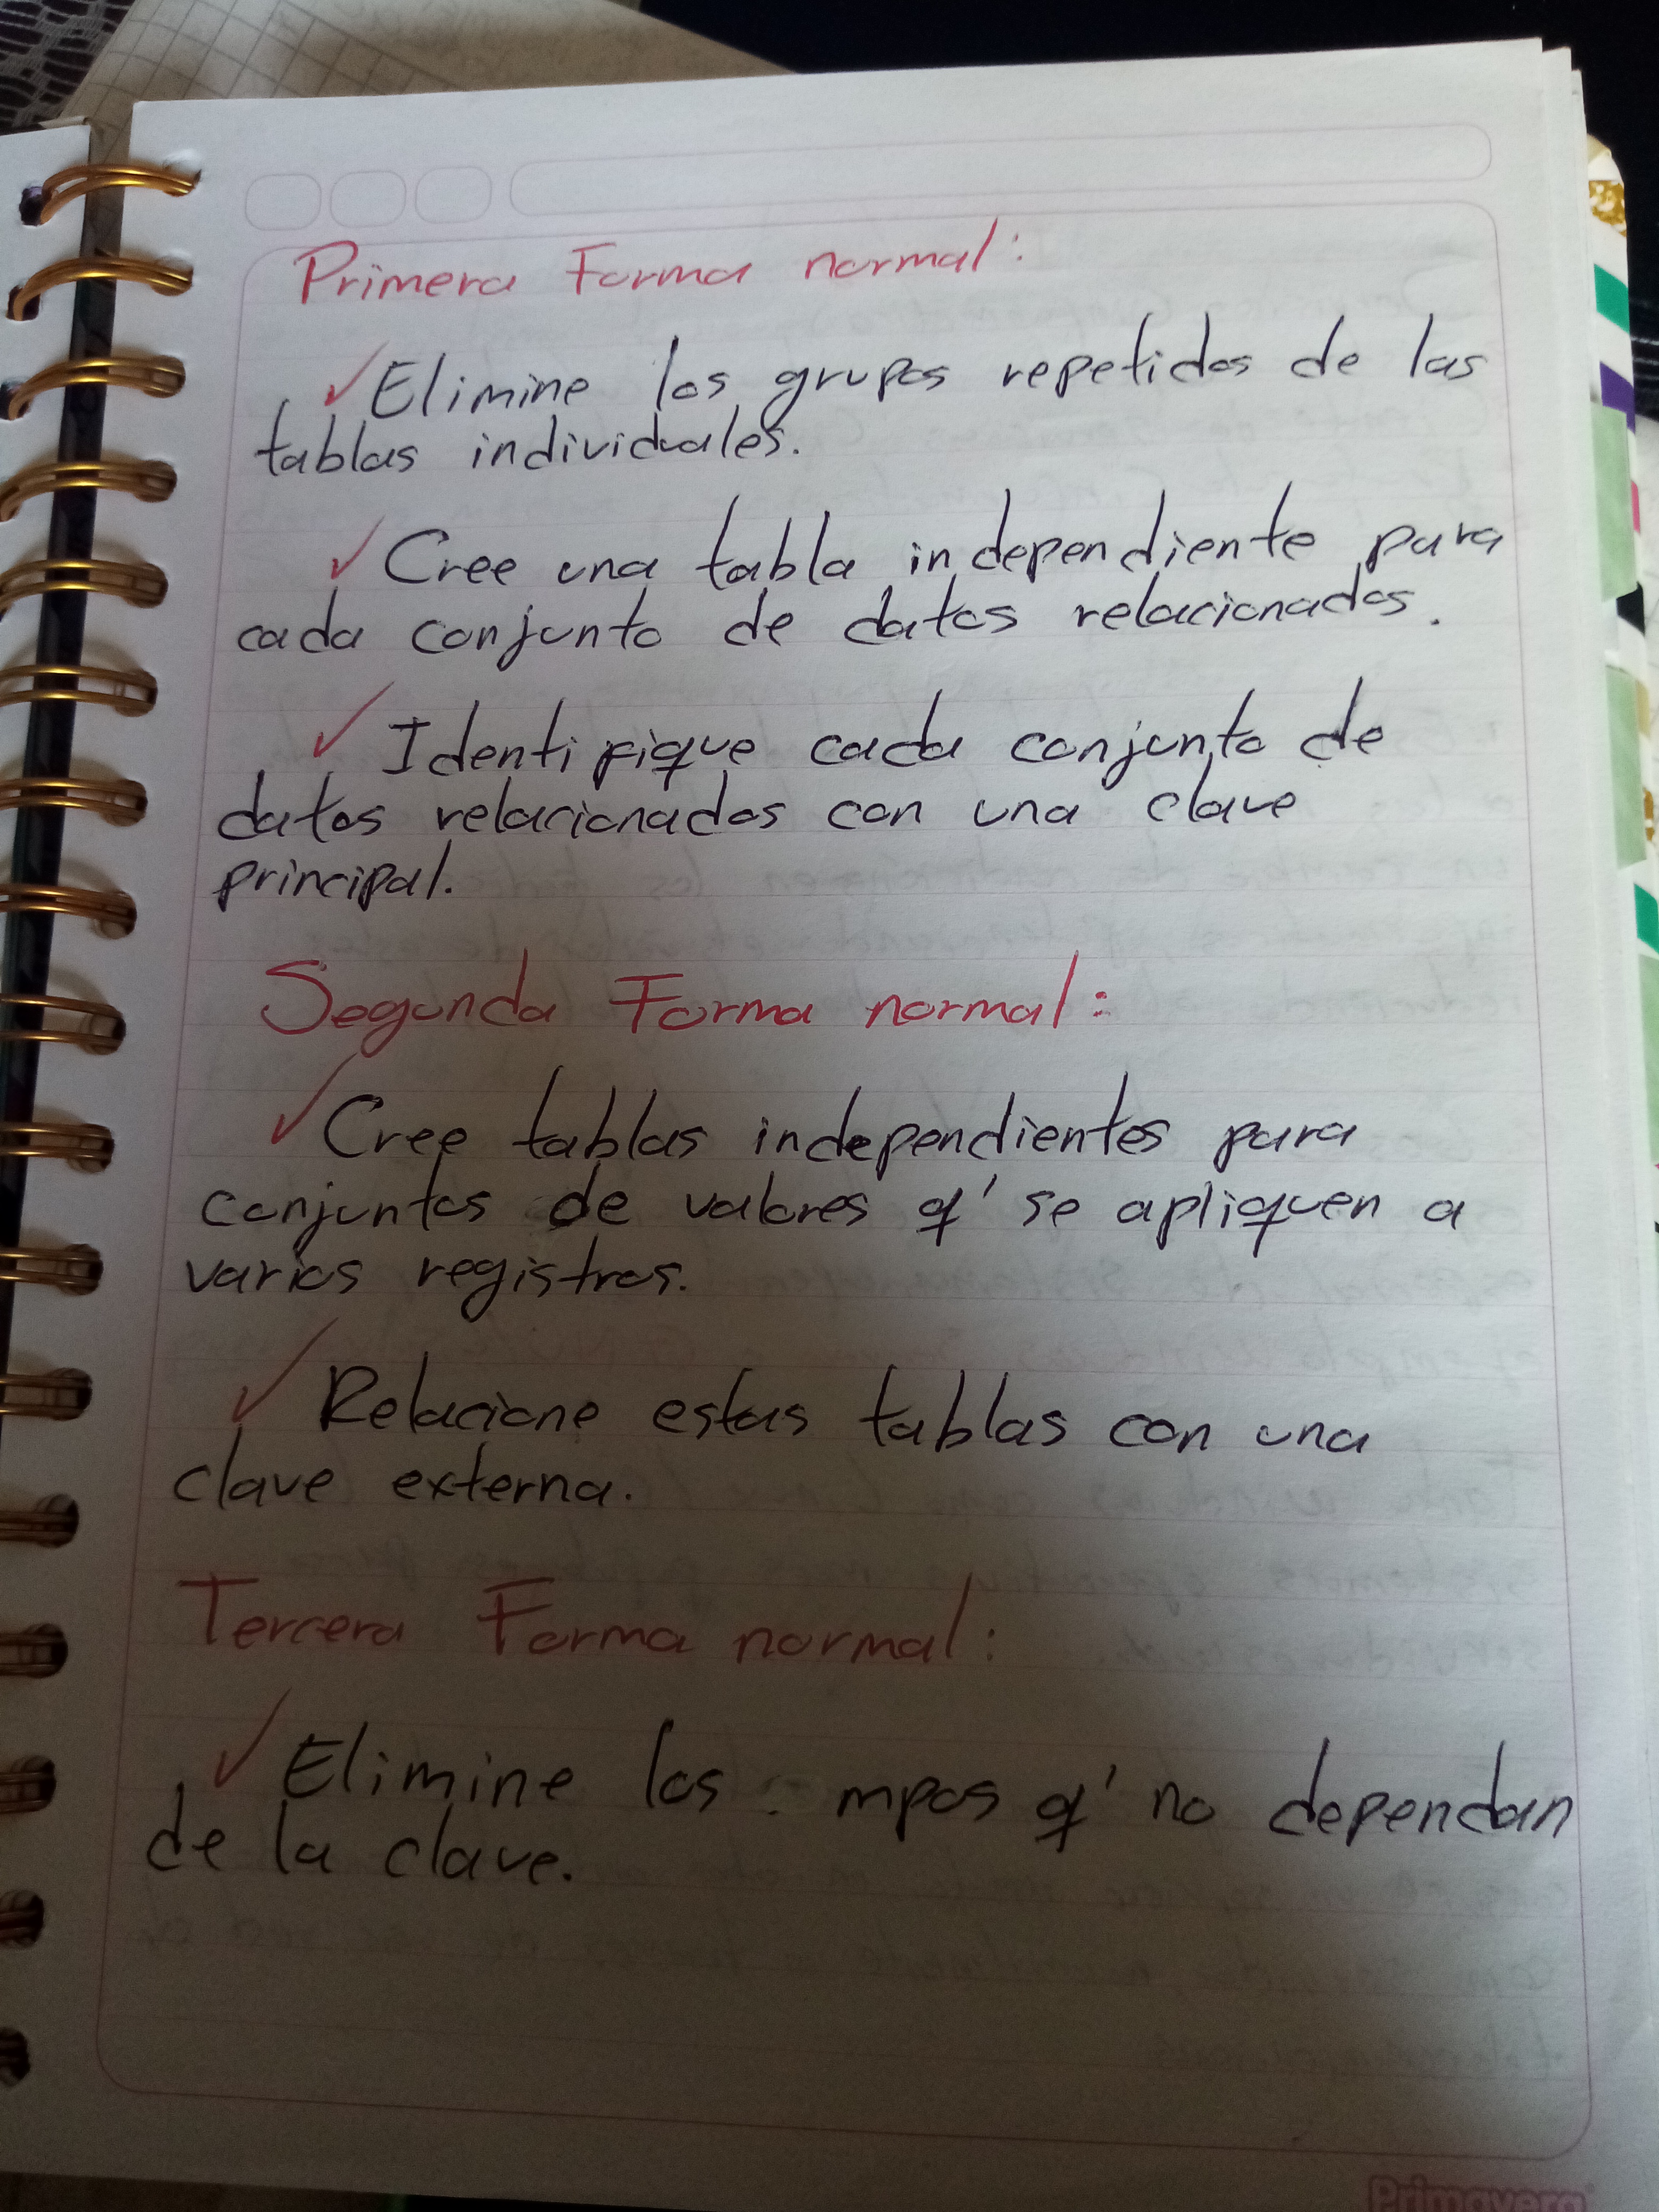 Primera Forma normal:
✓ Elimine los grupos repetidos de las
tablas individuales.
✓ Cree una tabla independiente para
cada conjunto de datos relacionados.
✓ Identifique cada conjunto de
datos relacionados con una clave
principal.
Segunda Forma normal:
✓ Cree tablas independientes para
conjuntos de valores q' se apliquen a
varios registros.
✓ Relacione estas tablas con una
clave externa.
Tercera Forma normal:
✓ Elimine los mpos q' no dependan
de la clave.
Primavera